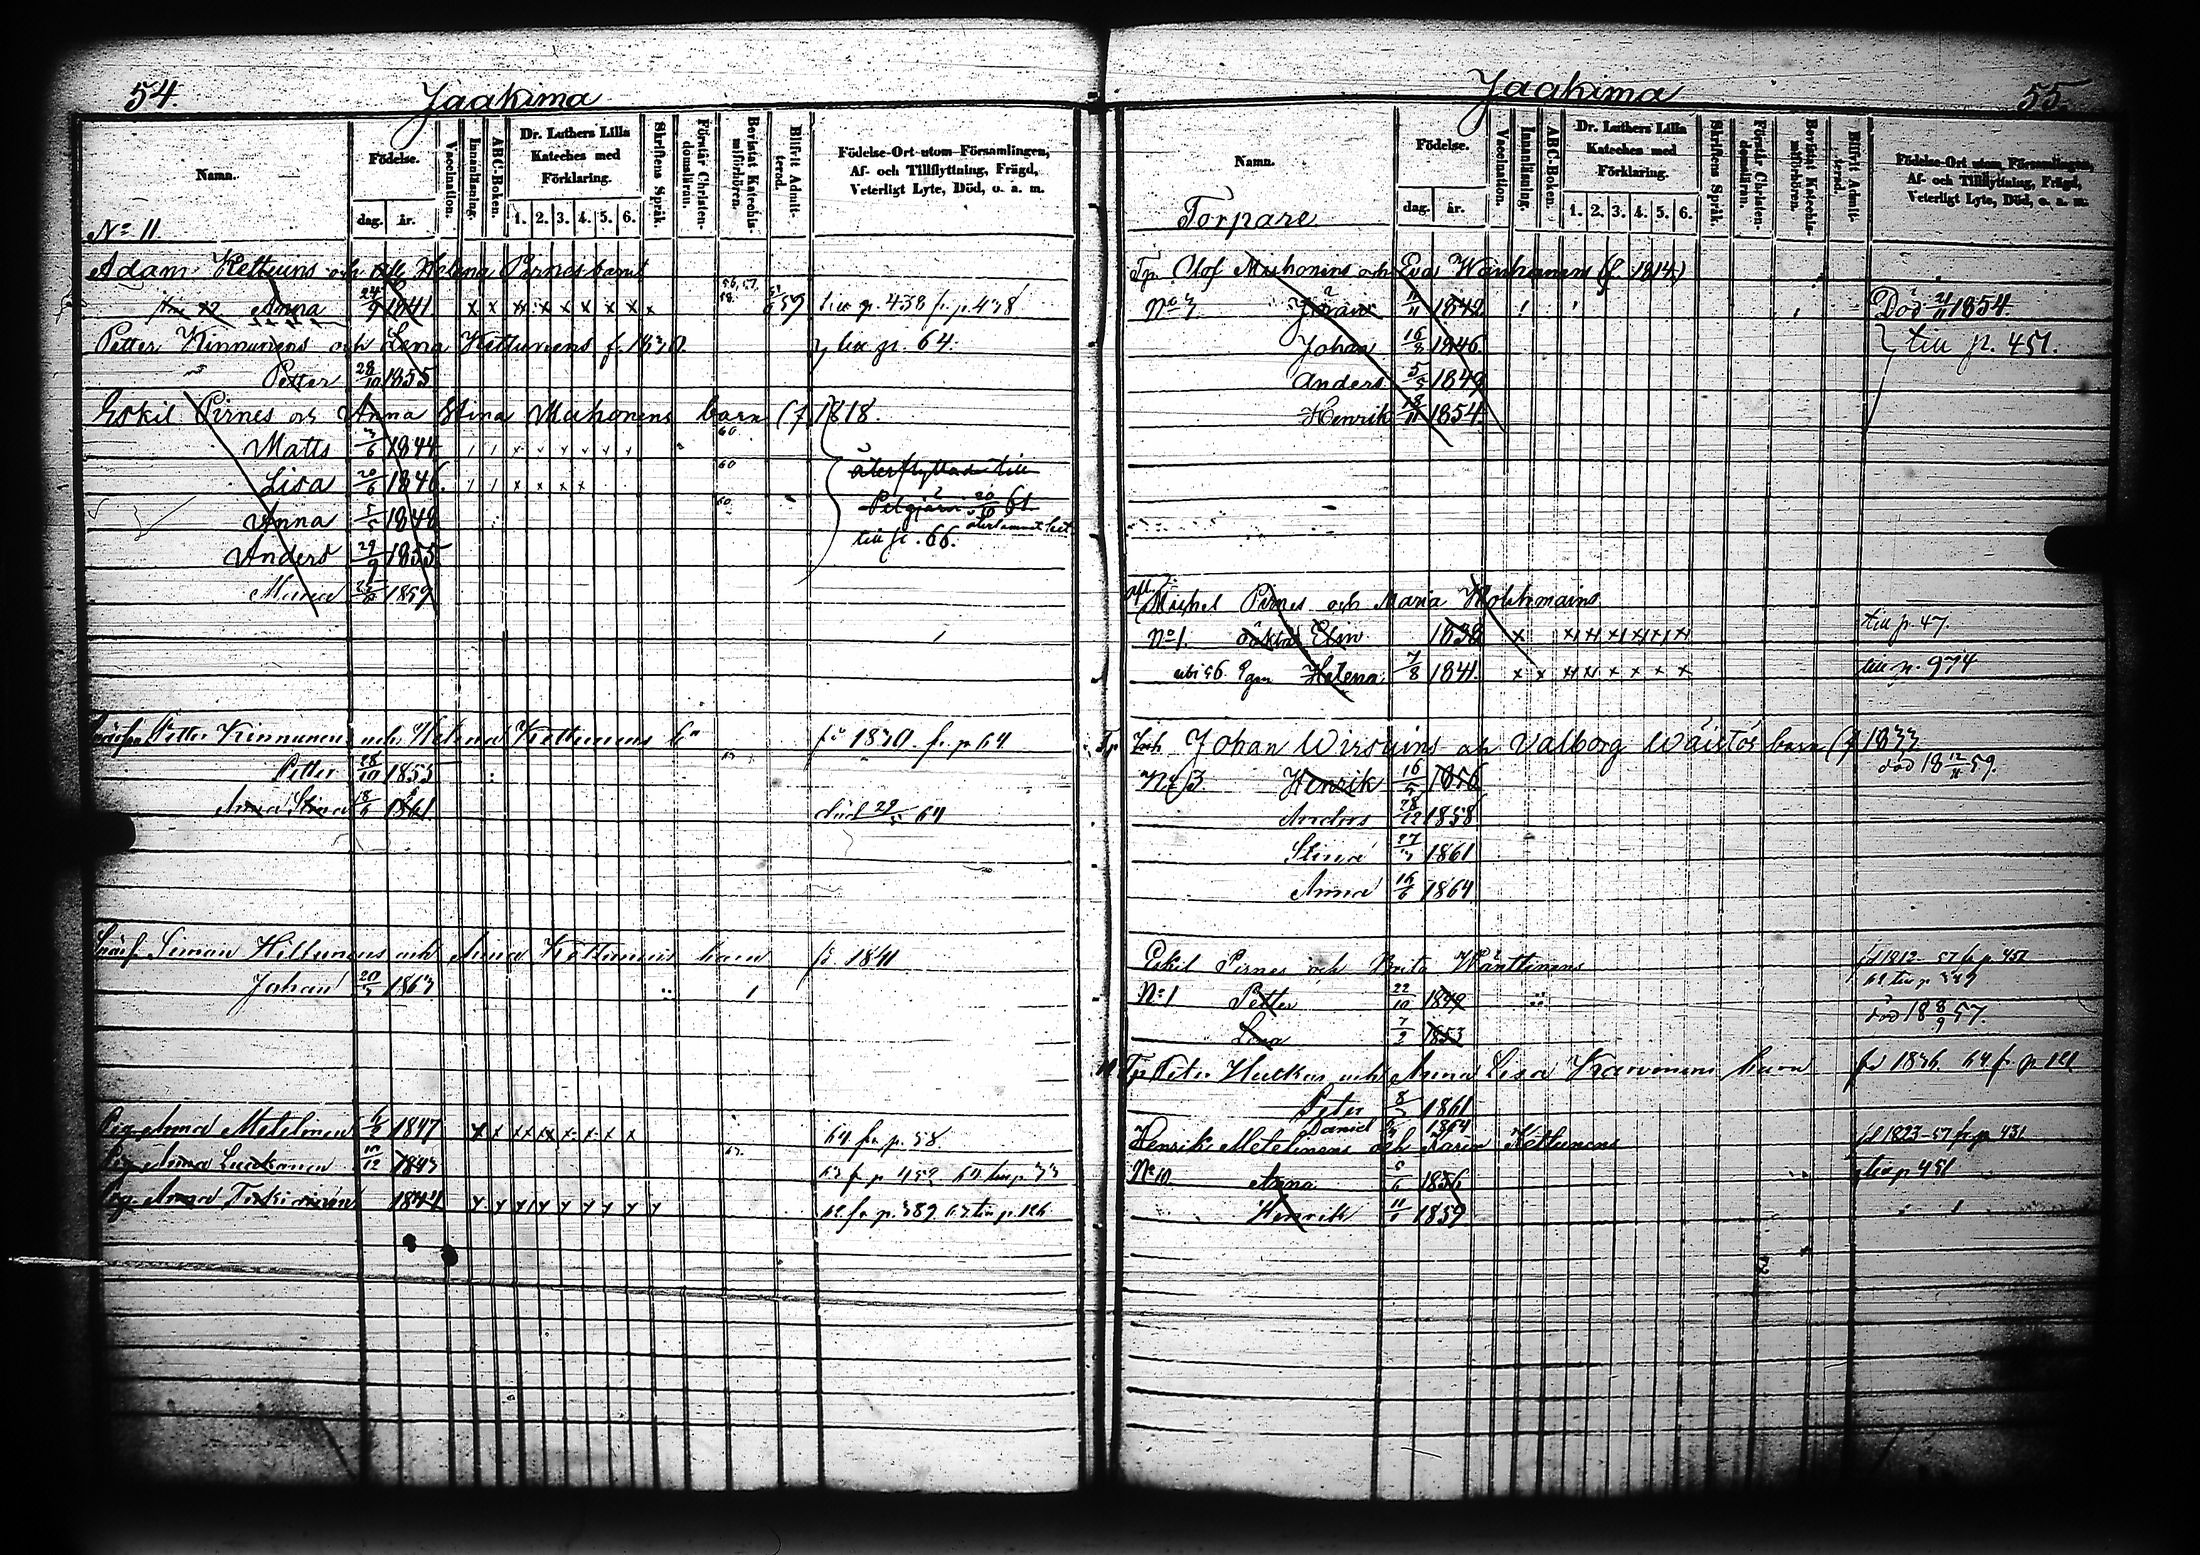 54.
Jaakima
Namn.
Födelse.
dag. år.
Vaccination.
Innanläsning.
ABC-Boken.
Dr. Luthers Lilla Kateches med Förklaring.
1. 2. 3. 4. 5. 6.
Skriftens Språk.
Förstår Christendomsläran.
Bevistat Katechismiförhören.
Blifvit Admitterad.
Födelse-Ort utom Församlingen, Af- och Tillflyttning, Frägd, Veterligt Lyte, Död, o. a. m.
No 11
Adam Kettuns och Helena Pirnes barn
Anna 24/9 1841 x x xx x x x x x x 59 till p. 438 fr. p. 438
Petter Kinnunens och Lena Kettunens f. 1830. till p. 64.
Petter 28/10 1855
Eskil Pirnes och Anna Stina Mahonens barn (f 1818.
Matts 3/6 1844 60
Lisa 20/6 1846. 60
återflyttad till
Anna 1848 60 20/10 61
återkommit
Anders 29/9 1855 till p. 66.
Mina 1859
Petter Kinnunen och Helena Kettunens fö 1830 fr. p 64
Petter 28/10 1855
Anna Stina 18/6 1861 död 29/5 64
Simon Hiltunens och Anna Kettunens barn fö 1841
Johan 20/7 1863
Pig. Anna Metelinen 6/2 1847 x x xx x x x x x 64 fr. p. 58
Pig Anna 1843 63 f p 452 64 till p 33
Pig Anna 1844 62 fr p. 389 67 till p. 126
Jaakima
55.
Namn.
Torpare
Födelse.
dag. år.
Vaccination.
Innanläsning.
ABC-Boken.
Dr. Luthers Lilla Kateches med Förklaring.
1. 2. 3. 4. 5. 6.
Skriftens Språk.
Förstår Christendomsläran.
Bevistat Katechismiförhören.
Blifvit Admitterad.
Födelse-Ort utom Församlingen, Af- och Tillflyttning, Frägd, Veterligt Lyte, Död, o. a. m.
Tp. Olof Mushonins och Eva Wanhanens (f 1814)
No 3 Göran 11/11 1842 Död 21/11 1854.
Johan 16/3 1846. till p. 451.
Anders 5/5 1849
Henrik 18/11 1854.
Michel Pirnes och Maria
No 1. Elin 1838 x till p. 47.
Helena 7/8 1841. x x xx x x x x x till p. 974
Johan Wirsuins och Valborg Wäistös barn (f 1833
No 13. Henrik 16/5 1856 död 18 12/11 59.
Anders 28/12 1858
Stina 27/3 1861
Anna 16/6 1864
Eskil Pirnes och Brita Wänttinens fd 1812 - 57 fr p. 451
No 1 Petter 22/10 1849
Lisa 7/2 1853 död 18 8/9 57.
Tp Peter och Anna Lisa Karvinens barn fö 1836 64 f. p 121
Peter 8/3 1861
Daniel 1864
Henrik Metelinens och Karin Kettunens fd 1823 - 57 fr p 431
No 10 Anna 5/6 1856 till p 451
Henrik 1859